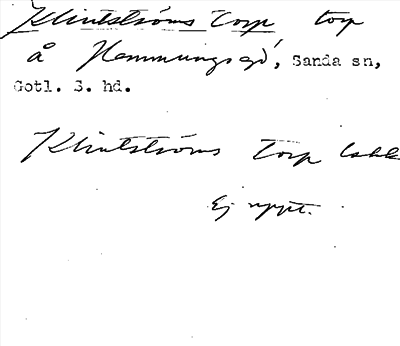 Klintströms Torp torp
å Hemmungs ägo, Sanda sn,
Gotl. S. hd.
Klintströms Torp
Ej uppt.